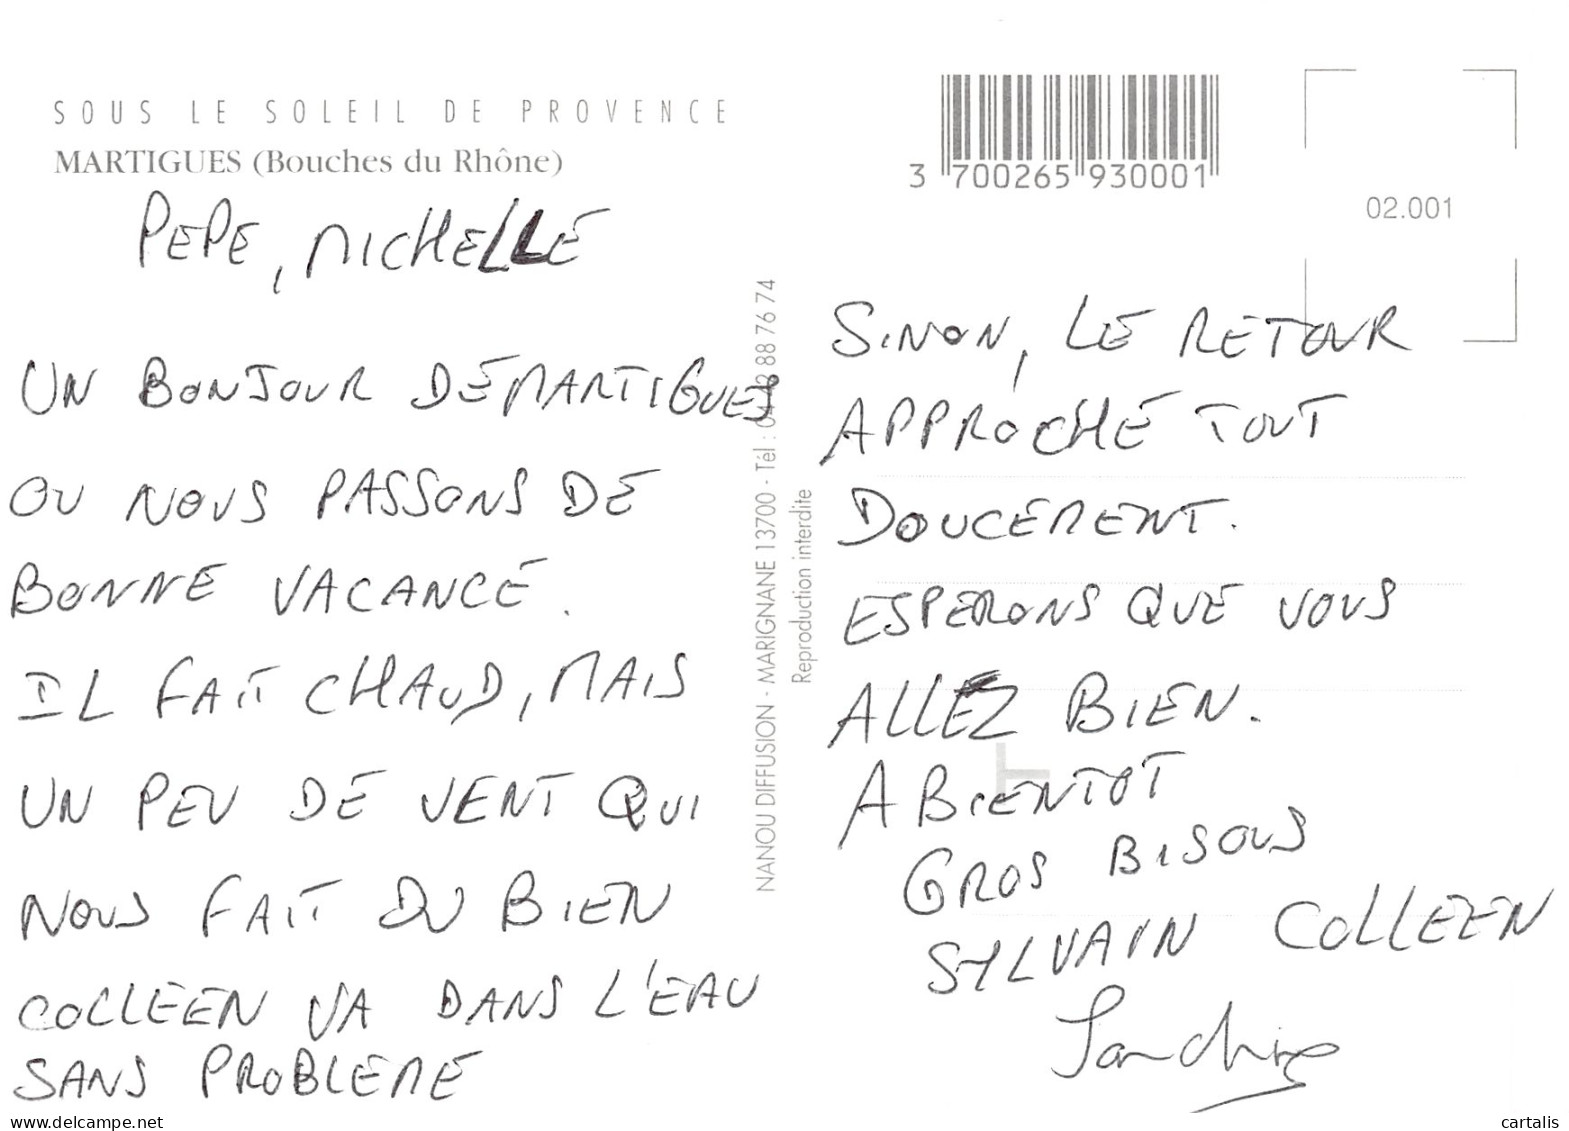 SOUS LE SOLEIL DE PROVENCE
MARTIGUES (Bouches du Rhône)
PEPE, MICHELLE
UN BONJOUR DE MARTIGUES
OU NOUS PASSONS DE
BONNE VACANCE.
IL FAIT CHAUD, MAIS
UN PEU DE VENT QUI
NOUS FAIT DU BIEN
COLLEEN VA DANS L'EAU
SANS PROBLEME
NANOU DIFFUSION - MARIGNANE 13700 - Tél : 88 76 74
Reproduction interdite
3 700265 930001
02.001
SINON, LE RETOUR
APPROCHE TOUT
DOUCEMENT.
ESPERONS QUE VOUS
ALLEZ BIEN.
A BIENTOT
GROS BISOUS
SYLVAIN COLLEEN
Sandrine
cartalis